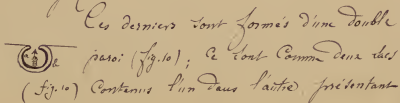 Ces derniers sont formés d'une double
paroi (fig. 10) ; ce sont comme deux sacs
(fig. 10) contenus l'un dans l'autre, présentant